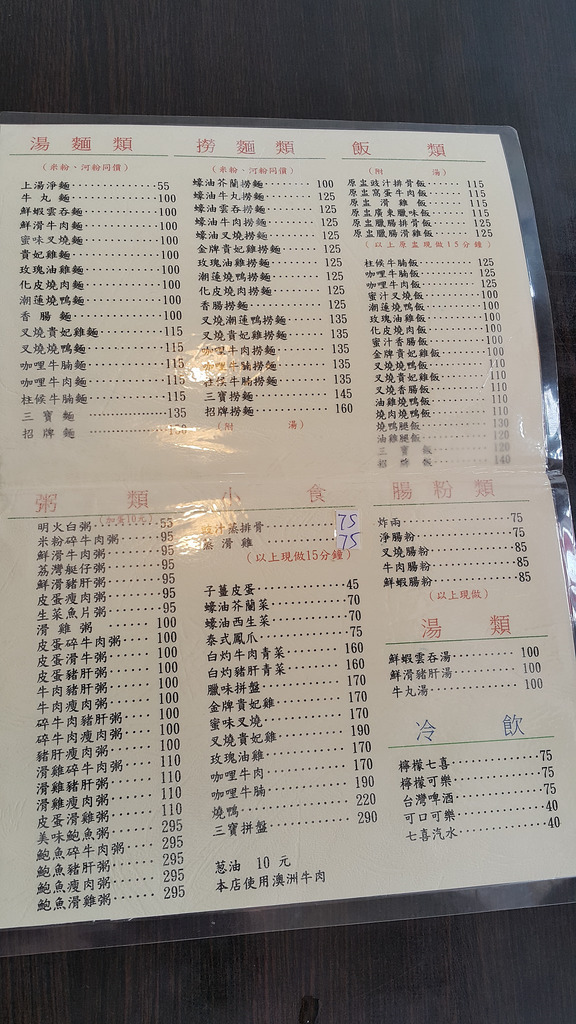 湯麵類
(米粉、河粉同價)
上湯淨麵 55
牛丸麵 100
鮮蝦雲吞麵 100
鮮滑牛肉麵 100
蜜味叉燒麵 100
貴妃雞麵 100
玫瑰油雞麵 100
化皮燒肉麵 100
潮蓮燒鴨麵 100
香腸麵 100
叉燒貴妃雞麵 115
叉燒燒鴨麵 115
咖哩牛腩麵 115
咖哩牛肉麵 115
柱候牛腩麵 115
三寶麵 135
招牌麵 150
撈麵類
(米粉、河粉同價)
蠔油芥蘭撈麵 100
蠔油牛丸撈麵 125
蠔油雲吞撈麵 125
蠔油牛肉撈麵 125
蠔油叉燒撈麵 125
金牌貴妃雞撈麵 125
玫瑰油雞撈麵 125
潮蓮燒鴨撈麵 125
化皮燒肉撈麵 125
香腸撈麵 125
叉燒潮蓮燒鴨撈麵 135
叉燒貴妃雞撈麵 135
咖哩牛肉撈麵 135
咖哩牛腩撈麵 135
柱候牛腩撈麵 135
三寶撈麵 145
招牌撈麵 160
(附湯)
飯類
(附湯)
原盅豉汁排骨飯 115
原盅窩蛋牛肉飯 115
原盅滑雞飯 115
原盅廣東臘味飯 115
原盅臘腸排骨飯 125
原盅臘腸滑雞飯 125
(以上原盅現做15分鐘)
柱候牛腩飯 125
咖哩牛腩飯 125
咖哩牛肉飯 125
蜜汁叉燒飯 100
潮蓮燒鴨飯 100
玫瑰油雞飯 100
化皮燒肉飯 100
蜜汁香腸飯 100
金牌貴妃雞飯 100
叉燒燒鴨飯 110
叉燒貴妃雞飯 110
叉燒香腸飯 110
油雞燒鴨飯 110
燒肉燒鴨飯 110
燒鴨腿飯 130
油雞腿飯 120
三寶飯 120
招牌飯 140
粥類
(加蛋10元)
明火白粥 55
米粉碎牛肉粥 95
鮮滑牛肉粥 95
荔灣艇仔粥 95
鮮滑豬肝粥 95
皮蛋瘦肉粥 95
生菜魚片粥 95
滑雞粥 100
皮蛋碎牛肉粥 100
皮蛋滑牛粥 100
皮蛋豬肝粥 100
牛肉豬肝粥 100
牛肉瘦肉粥 100
碎牛肉豬肝粥 100
碎牛肉瘦肉粥 100
豬肝瘦肉粥 100
滑雞碎牛肉粥 110
滑雞豬肝粥 110
滑雞瘦肉粥 110
皮蛋滑雞粥 110
美味鮑魚粥 295
鮑魚碎牛肉粥 295
鮑魚豬肝粥 295
鮑魚瘦肉粥 295
鮑魚滑雞粥 295
小食
豉汁蒸排骨 75
蒸滑雞 75
(以上現做15分鐘)
子薑皮蛋 45
蠔油芥蘭菜 70
蠔油西生菜 70
泰式鳳爪 75
白灼牛肉青菜 160
白灼豬肝青菜 160
臘味拼盤 170
金牌貴妃雞 170
蜜味叉燒 170
叉燒貴妃雞 190
玫瑰油雞 170
咖哩牛肉 170
咖哩牛腩 190
燒鴨 220
三寶拼盤 290
蔥油 10元
本店使用澳洲牛肉
腸粉類
炸兩 75
淨腸粉 75
叉燒腸粉 85
牛肉腸粉 85
鮮蝦腸粉 85
(以上現做)
湯類
鮮蝦雲吞湯 100
鮮滑豬肝湯 100
牛丸湯 100
冷飲
檸檬七喜 75
檸檬可樂 75
台灣啤酒 75
可口可樂 40
七喜汽水 40